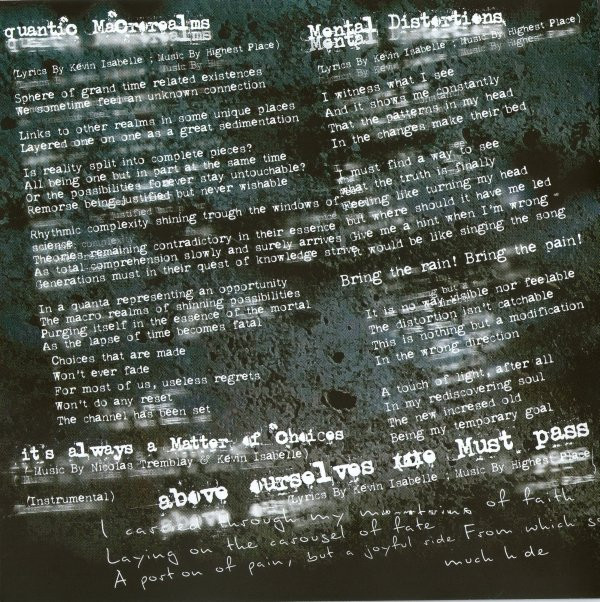 quantic Macrorealms
(Lyrics By Kevin Isabelle ; Music By Highest Place)
Sphere of grand time related existences
We sometime feel an unknown connection
Links to other realms in some unique places
Layered one on one as a great sedimentation
Is reality split into complete pieces?
All being one but in part at the same time
Or the possibilities forever stay untouchable?
Remorse being justified but never wishable
Rhythmic complexity shining trough the windows of
science
Theories remaining contradictory in their essence
As total comprehension slowly and surely arrives
Generations must in their quest of knowledge strive
In a quanta representing an opportunity
The macro realms of shinning possibilities
Purging itself in the essence of the mortal
As the lapse of time becomes fatal
Choices that are made
Won't ever fade
For most of us, useless regrets
Won't do any reset
The channel has been set
it's always a Matter of Choices
( Music By Nicolas Tremblay & Kevin Isabelle)
(Instrumental)
Mental Distortions
(Lyrics By Kevin Isabelle ; Music By Highest Place)
I witness what I see
And it shows me constantly
That the patterns in my head
In the changes make their bed
I must find a way to see
What the truth is finally
Feeling like turning my head
but where should it have me led
Give me a hint when I'm wrong
It would be like singing the song
Bring the rain! Bring the pain!
It is no way visible nor feelable
The distortion isn't catchable
This is nothing but a modification
In the wrong direction
A touch of light, after all
In my rediscovering soul
The new incresed old
Being my temporary goal
above ourselves time Must pass
(Lyrics By Kevin Isabelle ; Music By Highest Place)
I carved through my mountains of faith
Laying on the carousel of fate
A portion of pain, but a joyful ride From which
much hide